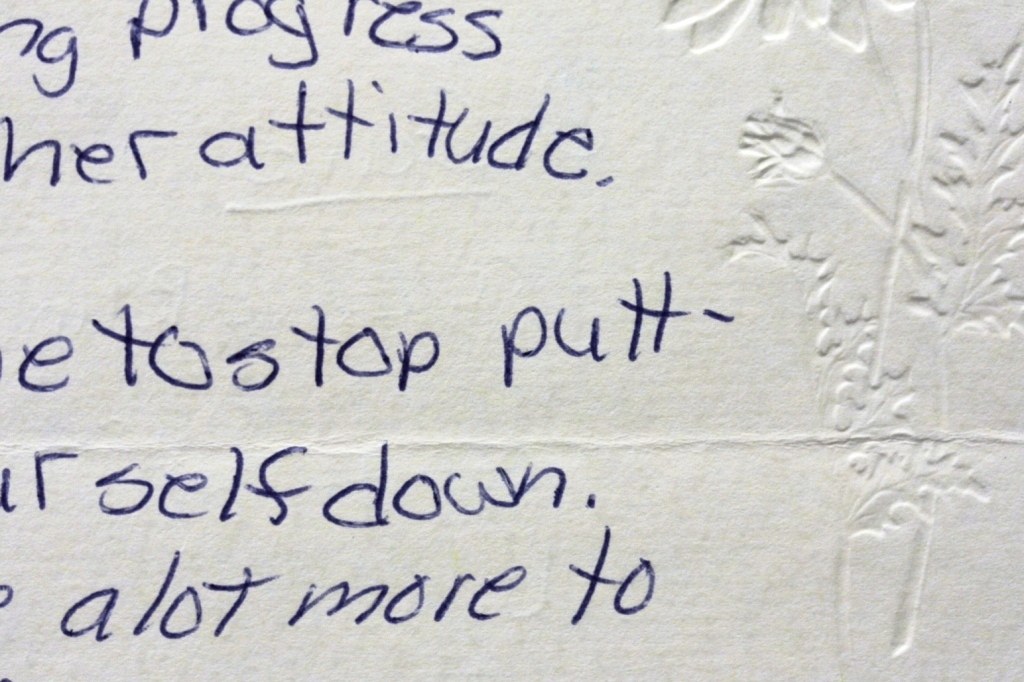 ng progress
her attitude.
e to stop putt-
ur self down.
a lot more to